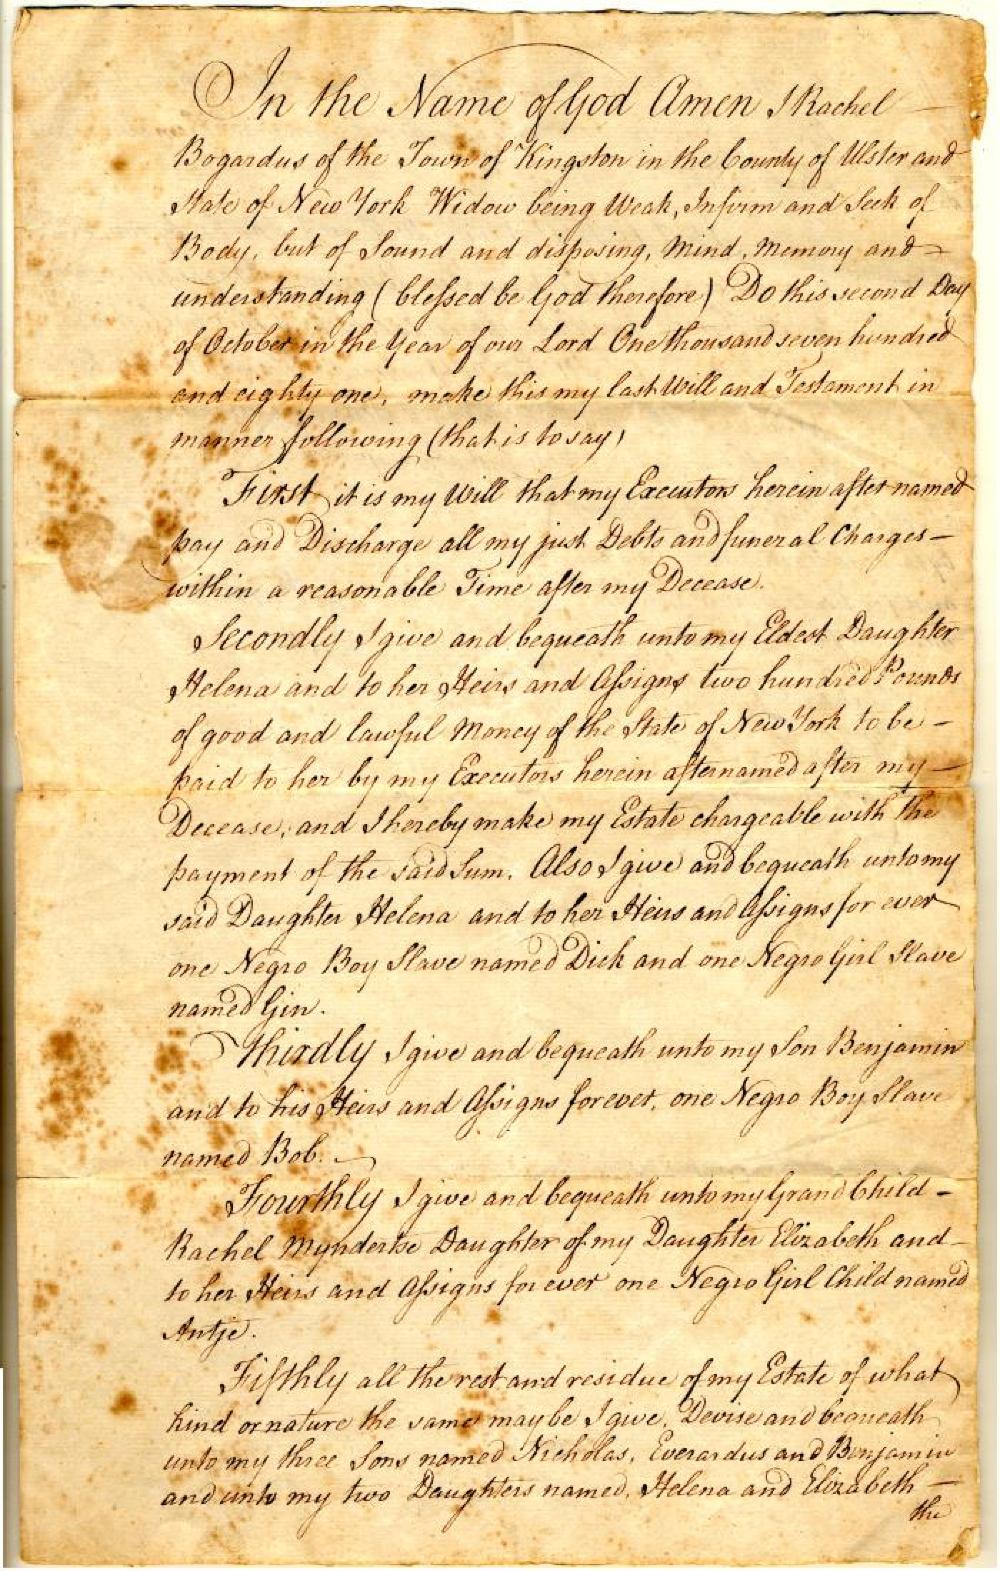 In the Name of God Amen I Rachel
Bogardus of the Town of Kingston in the County of Ulster and
State of New York Widow being Weak, Infirm and Seek of
Body, but of Sound and disposing, Mind, Memory and
understanding (blessed be God therefore) Do this second Day
of October in the Year of our Lord One thousand seven hundred
and eighty one, make this my last Will and Testament in
manner following (that is to say)
First it is my Will that my Executors herein after named
pay and Discharge all my just Debts and funeral Charges —
within a reasonable Time after my Decease.
Secondly I give and bequeath unto my Eldest Daughter
Helena and to her Heirs and Assigns two hundred Pounds
of good and lawful Money of the State of New York to be —
paid to her by my Executors herein afternamed after my —
Decease, and I hereby make my Estate chargeable with the
payment of the said Sum. Also I give and bequeath unto my
said Daughter Helena and to her Heirs and Assigns for ever
one Negro Boy Slave named Dick and one Negro Girl Slave
named Gin.
Thirdly I give and bequeath unto my Son Benjamin
and to his Heirs and Assigns forever, one Negro Boy Slave
named Bob. —
Fourthly I give and bequeath unto my Grand Child —
Rachel Mynderse Daughter of my Daughter Elizabeth and —
to her Heirs and Assigns for ever one Negro Girl Child named
Antje.
Fifthly all the rest and residue of my Estate of what
kind or nature the same may be I give, Devise and bequeath
unto my three Sons named Nicholas, Everardus and Benjamin
and unto my two Daughters named, Helena and Elizabeth —
the